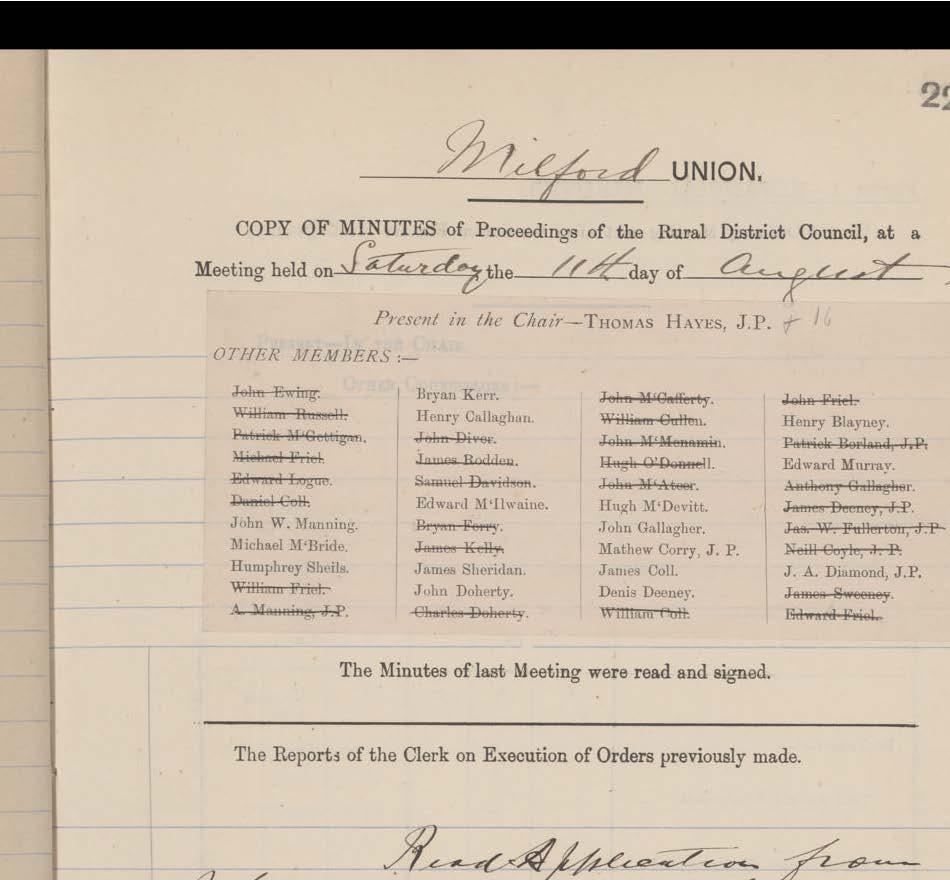 22
Milford UNION.
COPY OF MINUTES of Proceedings of the Rural District Council, at a
Meeting held on Saturday the 11th day of August
Present in the Chair—THOMAS HAYES, J.P. & 16
OTHER MEMBERS :—
John Ewing.
William Russell.
Patrick M‘Gettigan.
Michael Friel.
Edward Logue.
Daniel Coll.
John W. Manning.
Michael M‘Bride.
Humphrey Sheils.
William Friel.
A. Manning, J.P.
Bryan Kerr.
Henry Callaghan.
John Diver.
James Rodden.
Samuel Davidson.
Edward M‘Ilwaine.
Bryan Ferry.
James Kelly.
James Sheridan.
John Doherty.
Charles Doherty.
John M‘Cafferty.
William Cullen.
John M‘Menamin.
Hugh O’Donnell.
John M‘Ateer.
Hugh M‘Devitt.
John Gallagher.
Mathew Corry, J. P.
James Coll.
Denis Deeney.
William Coll.
John Friel.
Henry Blayney.
Patrick Borland, J.P.
Edward Murray.
Anthony Gallagher.
James Deeney, J.P.
Jas. W. Fullerton, J.P
Neill Coyle, J. P.
J. A. Diamond, J.P.
James Sweeney.
Edward Friel.
The Minutes of last Meeting were read and signed.
The Reports of the Clerk on Execution of Orders previously made.
Read Application from